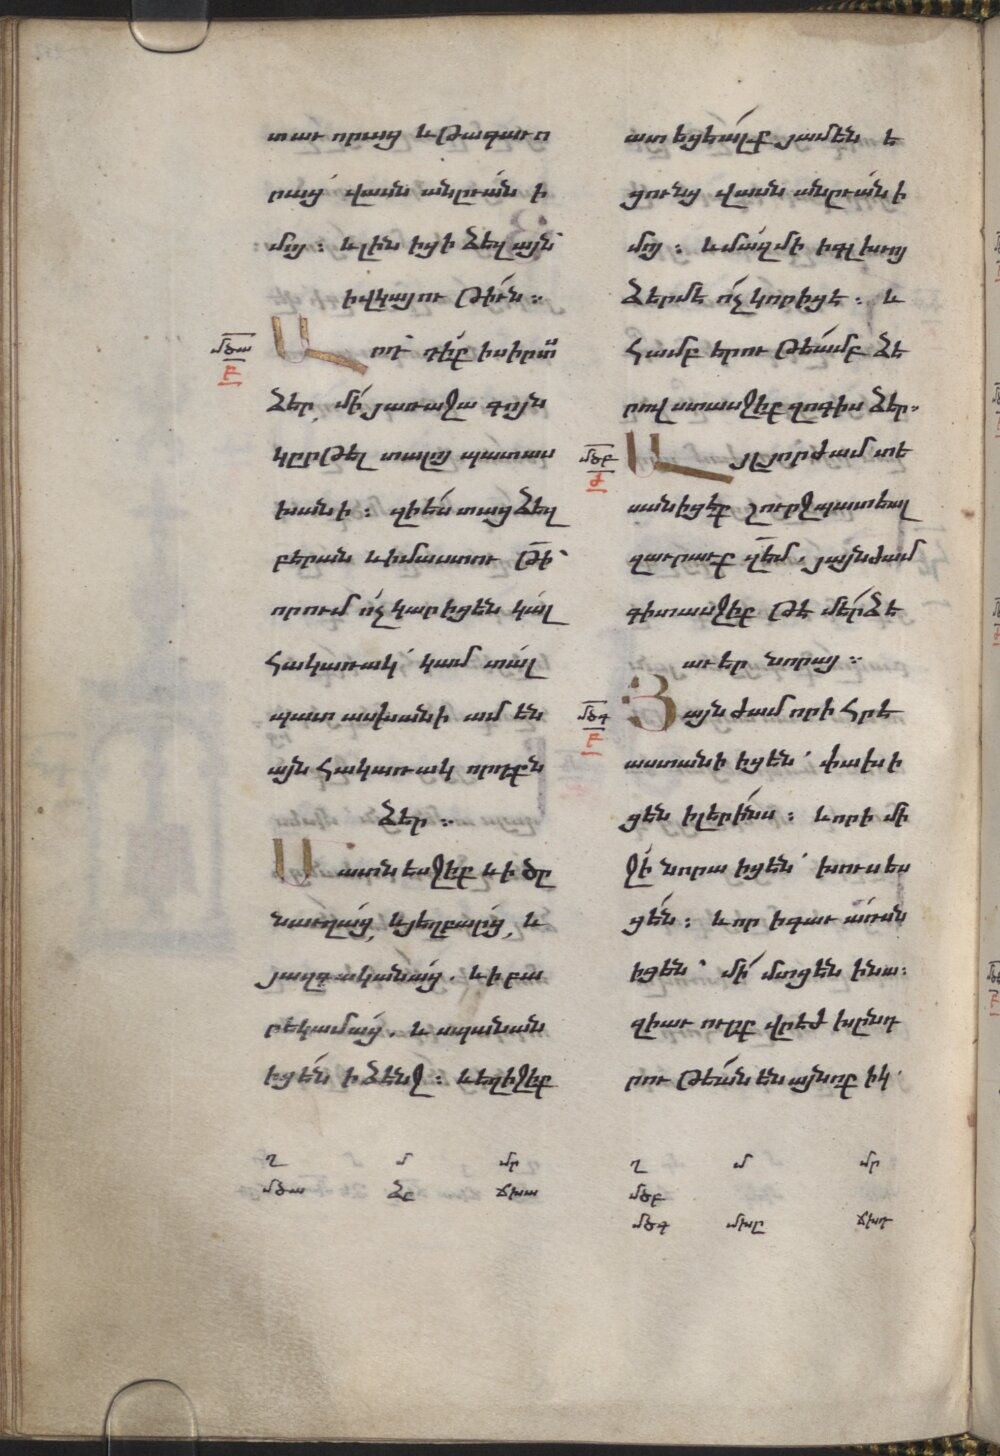 տաւորաց և թագաւո
րաց՝ վասն անըւան ի
մոյ։ և լինիցի ձեզ այն՝
ի վկայութիւն։
մծա
բ
Արդ՝ դիք ի սիրտս
ձեր, մի՛ յառաջագոյն
կըրթել տալոյ պատաս
խանի։ զի ես տաց ձեզ
բերան և իմաստութի՝
որում ոչ կարիցեն կալ
հակառակ՝ կամ տալ
պատասխանի ամեն
այն հակառակ որդքն
ձեր։
Մատնեսջիք և ի ծը
նաւղաց, և յեղբարց, և
յազգականաց. և ի բա
րեկամաց. և սպանան
իցեն ի ձենջ։ և եղիջիք
ատեցեալք յամենե
ցունց վասն անըւան ի
մոյ։ և մազ մի ի գլխոյ
ձերմէ ոչ կորիցե։ և
համբերութեամբ ձե
րով ստասջիք զոգիս ձեր։
մծբ
ժ
Այլ յորժամ տե
սանիցեք շուրջ պատեալ
զաւրաւք զեմ. յայնժամ
գիտասջիք թե մերձե
աւ եր նորայ։
մծգ
բ
Յայնժամ որ ի հրե
աստանի իցեն՝ փախի
ցեն ի լերինս։ և որ ի մի
ջի նորա իցեն՝ խուսես
ցեն։ և որ ի գաւառան
իցեն՝ մի մտցեն ի նա։
զի աւուրք վրեժխընդ
րութեան են այնոք իկ՝
ղ մ մր
մծա ձբ ճխա
ղ մ մր
մծբ
մծգ մխը ճխդ